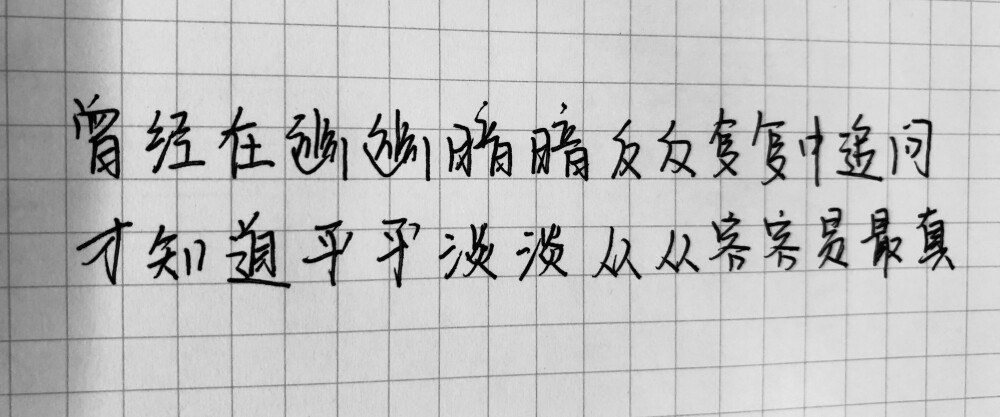 曾经在幽幽暗暗反反复复中追问
才知道平平淡淡从从容容是最真